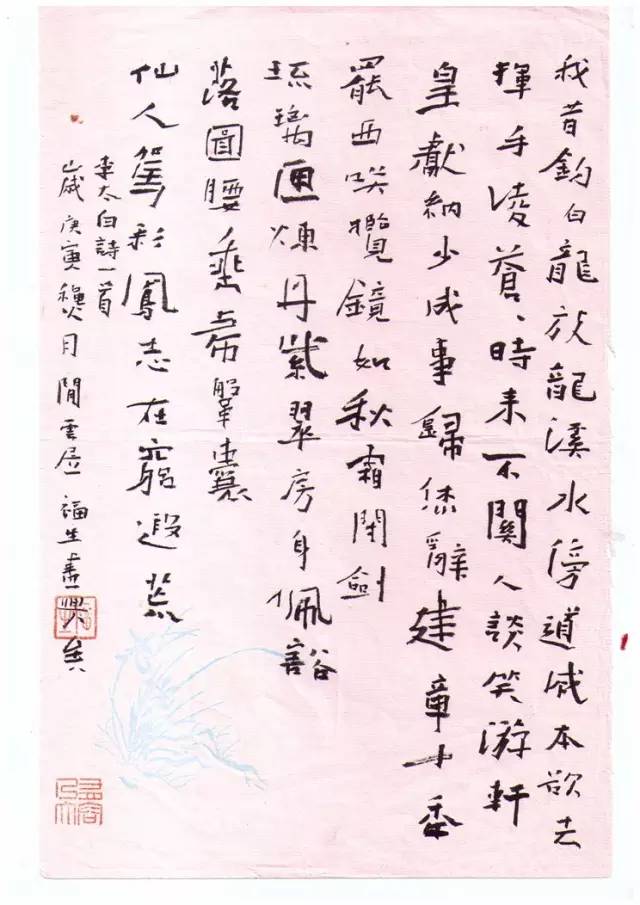 我昔釣白龍放龍溪水傍道成本欲去
揮手凌蒼〻時来不關人談笑游軒
皇獻納少成事歸休辭建章十季
罷西咲攬鏡如秋霜閉劍
琉璃匣煉丹紫翠房身佩豁
落圖腰垂虎鞶囊
仙人駕彩鳳志在窮遐荒
李太白詩一首
歲庚寅穐月閒雲居福生